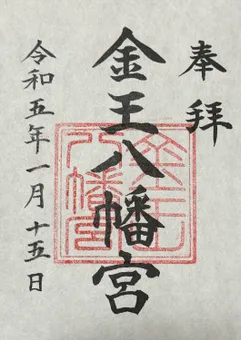 奉拝
金王八幡宮
金王八幡宮
令和五年一月十五日